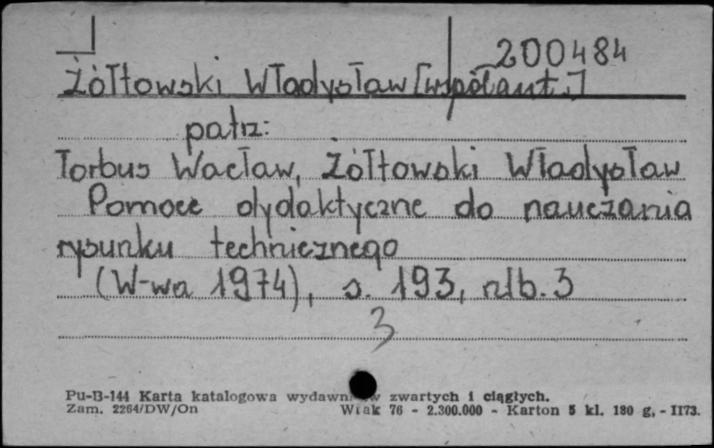 200484
Żółtowski Władysław [współaut.]
patrz:
Torbus Wacław, Żółtowski Władysław
Pomoce dydaktyczne do nauczania
rysunku technicznego
(W-wa 1974), s. 193, nlb. 3
3
Pu-B-144 Karta katalogowa wydawn w zwartych i ciągłych.
Zam. 2264/DW/On Wiak 76 - 2.300.000 - Karton 5 kl. 180 g. - II73.